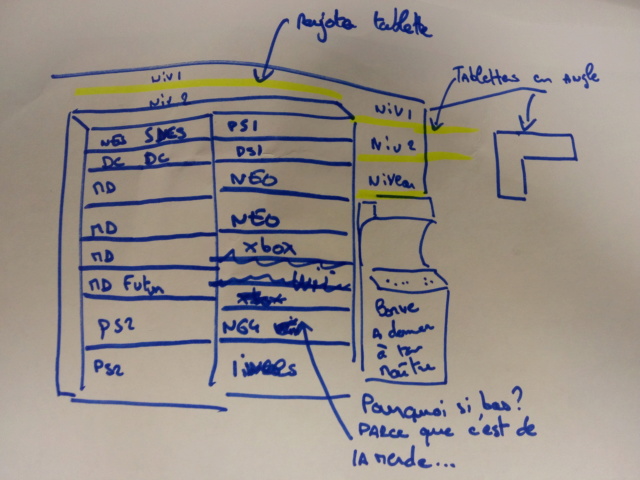 Rajouter tablette
Niv 1
Niv 2
Tablettes en Angle
Niv 1
Niv 2
Niveau
NES SNES
DC DC
MD
MD
MD
MD Futur
PS2
PS2
PS1
PS1
NEO
NEO
xbox
Wii
N64
Borne
A donner
à ton
maître
Pourquoi si bas?
PARCE que c'est de
LA merde...